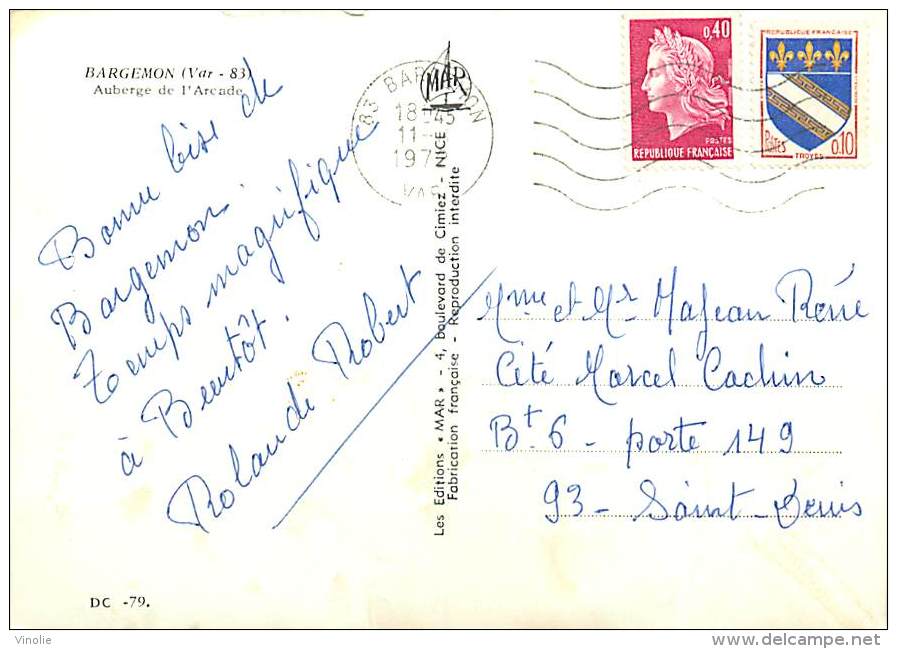 BARGEMON (Var - 83)
Auberge de l'Arcade
Bonne bise de
Bargemon.
Temps magnifique
à Bientôt.
Rolande Robert
DC -79.
83 BARGEMON
18H45
11-
197
VAR
MAR
Les Editions « MAR » - 4, Boulevard de Cimiez - NICE
Fabrication française - Reproduction interdite
0,40
POSTES
REPUBLIQUE FRANÇAISE
REPUBLIQUE FRANÇAISE
POSTES
0,10
TROYES
Mme et Mr Majean René
Cité Marcel Cachin
Bt 6 - porte 149
93 - Saint-Denis
Vinolie
delcampe.net